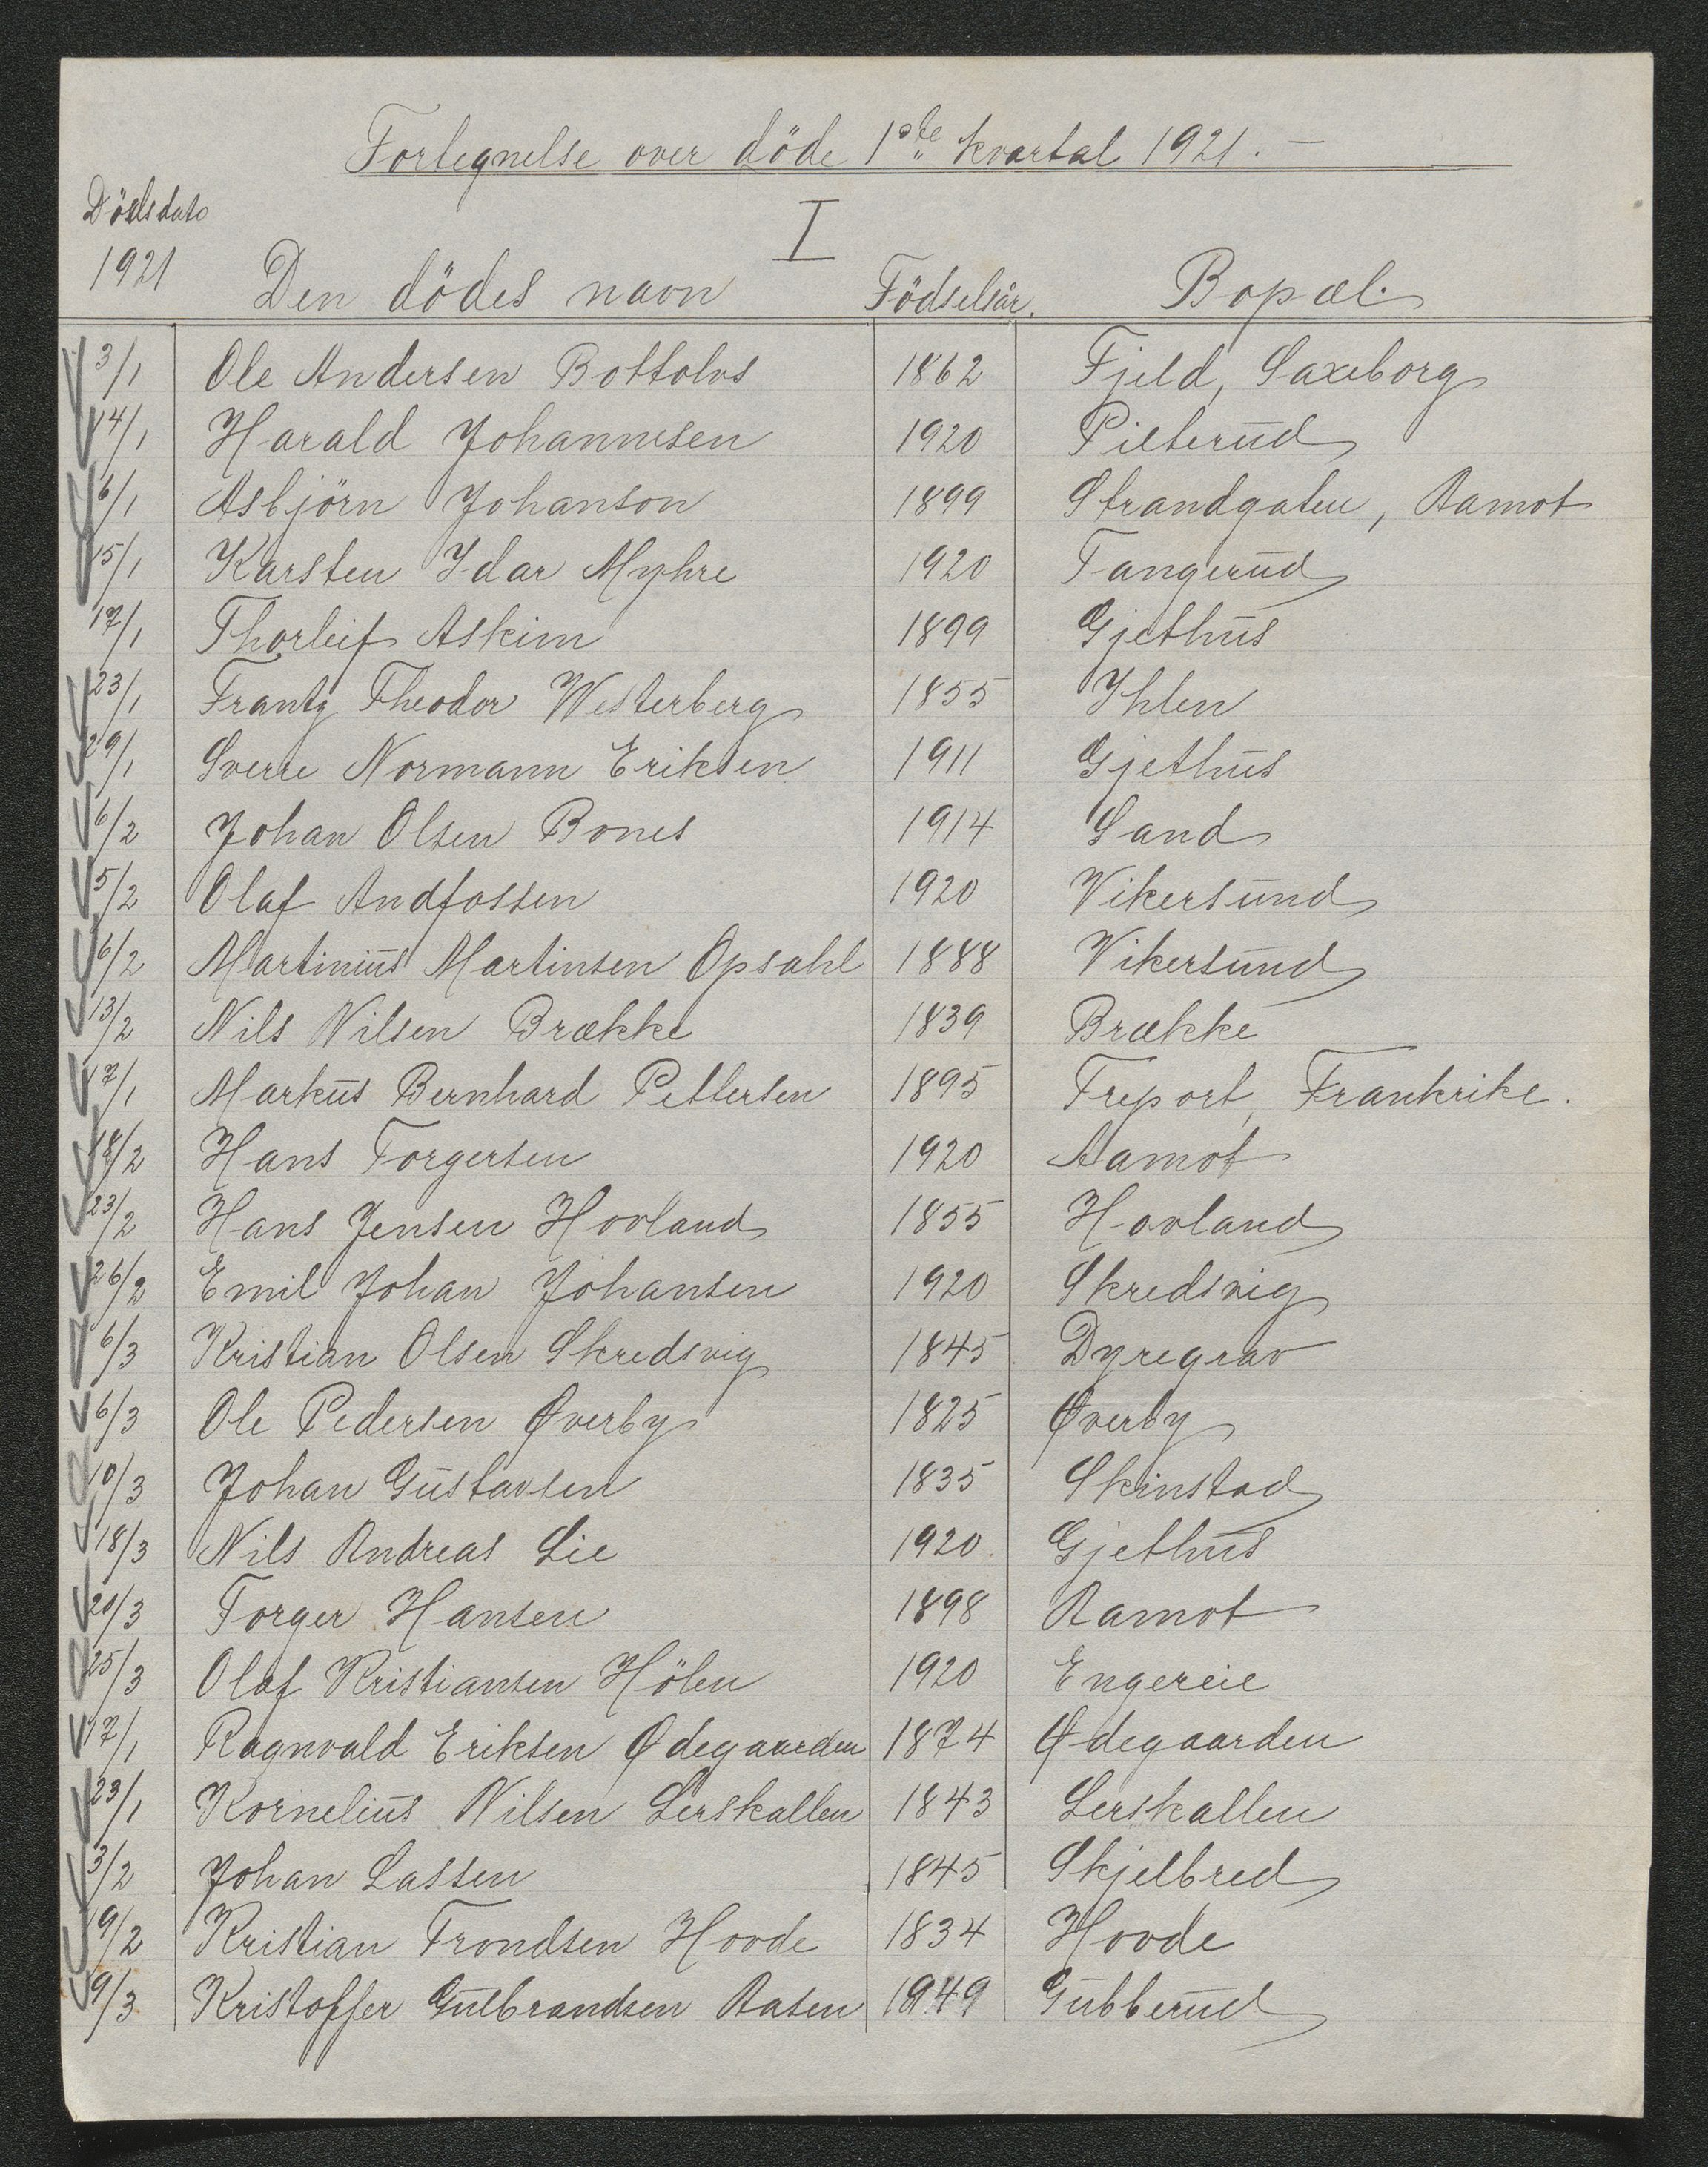 Fortegnelse over döde 1ste kvartal 1921. —
I
Dödsdato
1921 Den dödes navn Födselsår. Bopæl.
3/1 Ole Andersen Bottolvs 1862 Fjeld, Saxeborg
14/1 Harald Johannesen 1920 Pilterud
6/1 Asbjörn Johanson 1899 Strandgaten, Aamot
15/1 Karsten Idar Myhre 1920 Tangerud
17/1 Thorleif Askim 1899 Gjethus
23/1 Frantz Theodor Westerberg 1855 Ihlen
29/1 Sverre Normann Eriksen 1911 Gjethus
6/2 Johan Olsen Bones 1914 Sand
5/2 Olaf Andfossen 1920 Vikersund
6/2 Martinius Martinsen Opsahl 1888 Vikersund
13/2 Nils Nilsen Brække 1839 Brække
17/1 Markus Bernhard Pettersen 1895 Treport, Frankrike.
18/2 Hans Torgersen 1920 Aamot
23/2 Hans Jensen Hovland 1855 Hovland
26/2 Emil Johan Johansen 1920 Skredsvig
6/3 Kristian Olsen Skredsvig 1845 Dyregrav
6/3 Ole Pedersen Øverby 1825 Øverby
10/3 Johan Gustavsen 1835 Skinstad
18/3 Nils Andreas Lie 1920 Gjethus
20/3 Torger Hansen 1898 Aamot
25/3 Olaf Kristiansen Hölen 1920 Engereie
17/1 Ragnvald Eriksen Ødegaarden 1874 Ødegaarden
23/1 Kornelius Nilsen Lerskallen 1843 Lerskallen
3/2 Johan Lassen 1845 Skjelbred
19/2 Kristian Trondsen Hovde 1834 Hovde
9/3 Kristoffer Gulbrandsen Aasen 1949 Gubberud